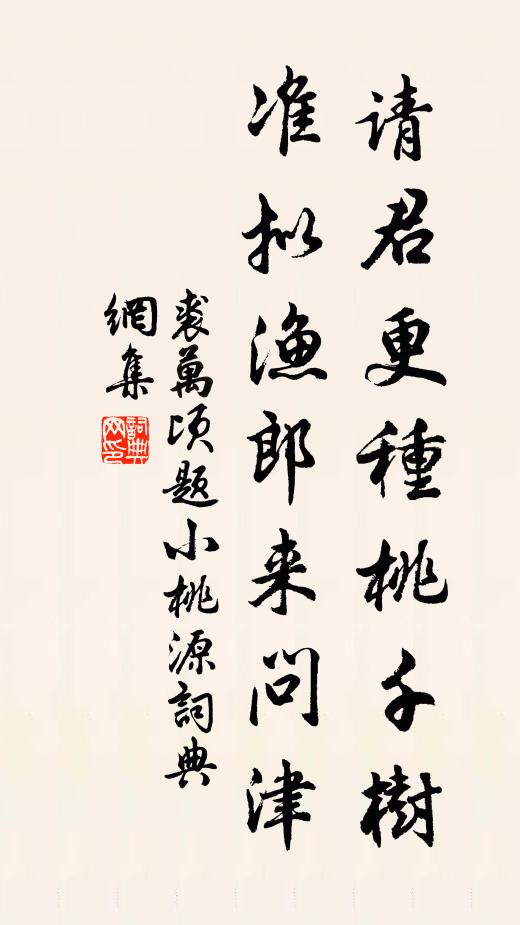 请君更種桃千樹
准拟渔郎来问津
裘萬顷题小桃源詞典
網集
詞典网印